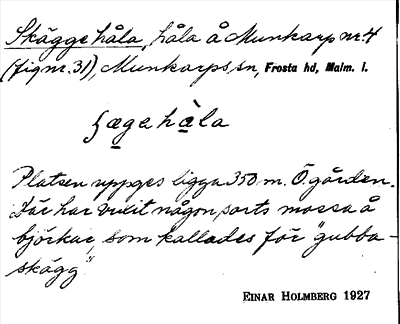 Skäggehåla, håla å Munkarp nr. 4
(fig nr. 31), Munkarps sn, Frosta hd, Malm. l.
ʃægehàla
Platsen uppges ligga 350 m. Ö. gården.
Där har vuxit någon sorts mossa å
björkar, som kallades för "gubba-
skägg".
EINAR HOLMBERG 1927